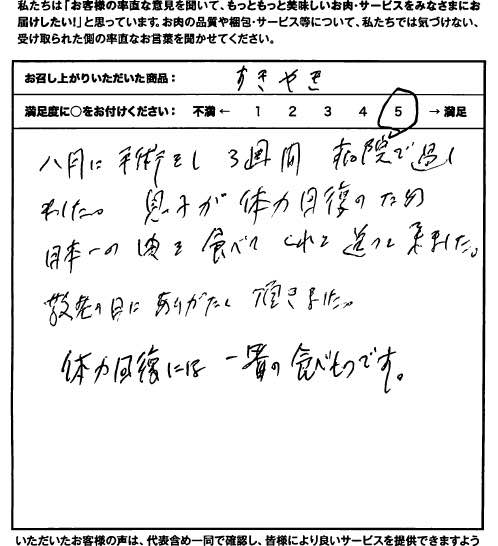 私たちは「お客様の率直な意見を聞いて、もっともっと美味しいお肉・サービスをみなさまにお
届けしたい！」と思っています。お肉の品質や梱包・サービス等について、私たちでは気づけない、
受け取られた側の率直なお言葉を聞かせてください。
お召し上がりいただいた商品： すきやき
満足度に○をお付けください： 不満 ← 1 2 3 4 5 → 満足
八月に手術をし3週間 病院で過し
ました。 息子が体力回復のため
日本一の肉を食べてくれと送って来ました。
敬老の日にありがたく頂きました。
体力回復には一番の食べものです。
いただいたお客様の声は、代表含め一同で確認し、皆様により良いサービスを提供できますよう